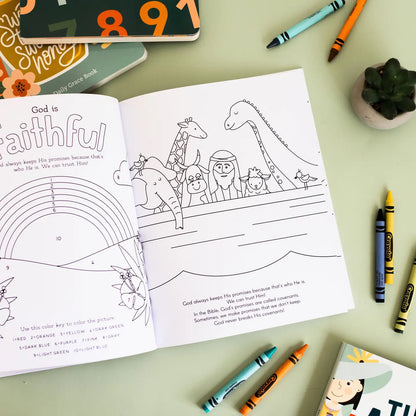 789
sweeter
honey
Daily Grace Book
God is
faithful
God always keeps His promises because that's
who He is. We can trust Him!
10
9
Use this color key to color the picture.
1=RED 2=ORANGE 3=YELLOW 4=DARK GREEN
5=DARK BLUE 6=PURPLE 7=PINK 8=GRAY
9=LIGHT GREEN 10=LIGHT BLUE
God always keeps His promises because that's who He is.
We can trust Him!
In the Bible, God's promises are called covenants.
Sometimes, we make promises that we don't keep.
God never breaks His covenants!
Crayola
Crayola
Crayola
TH